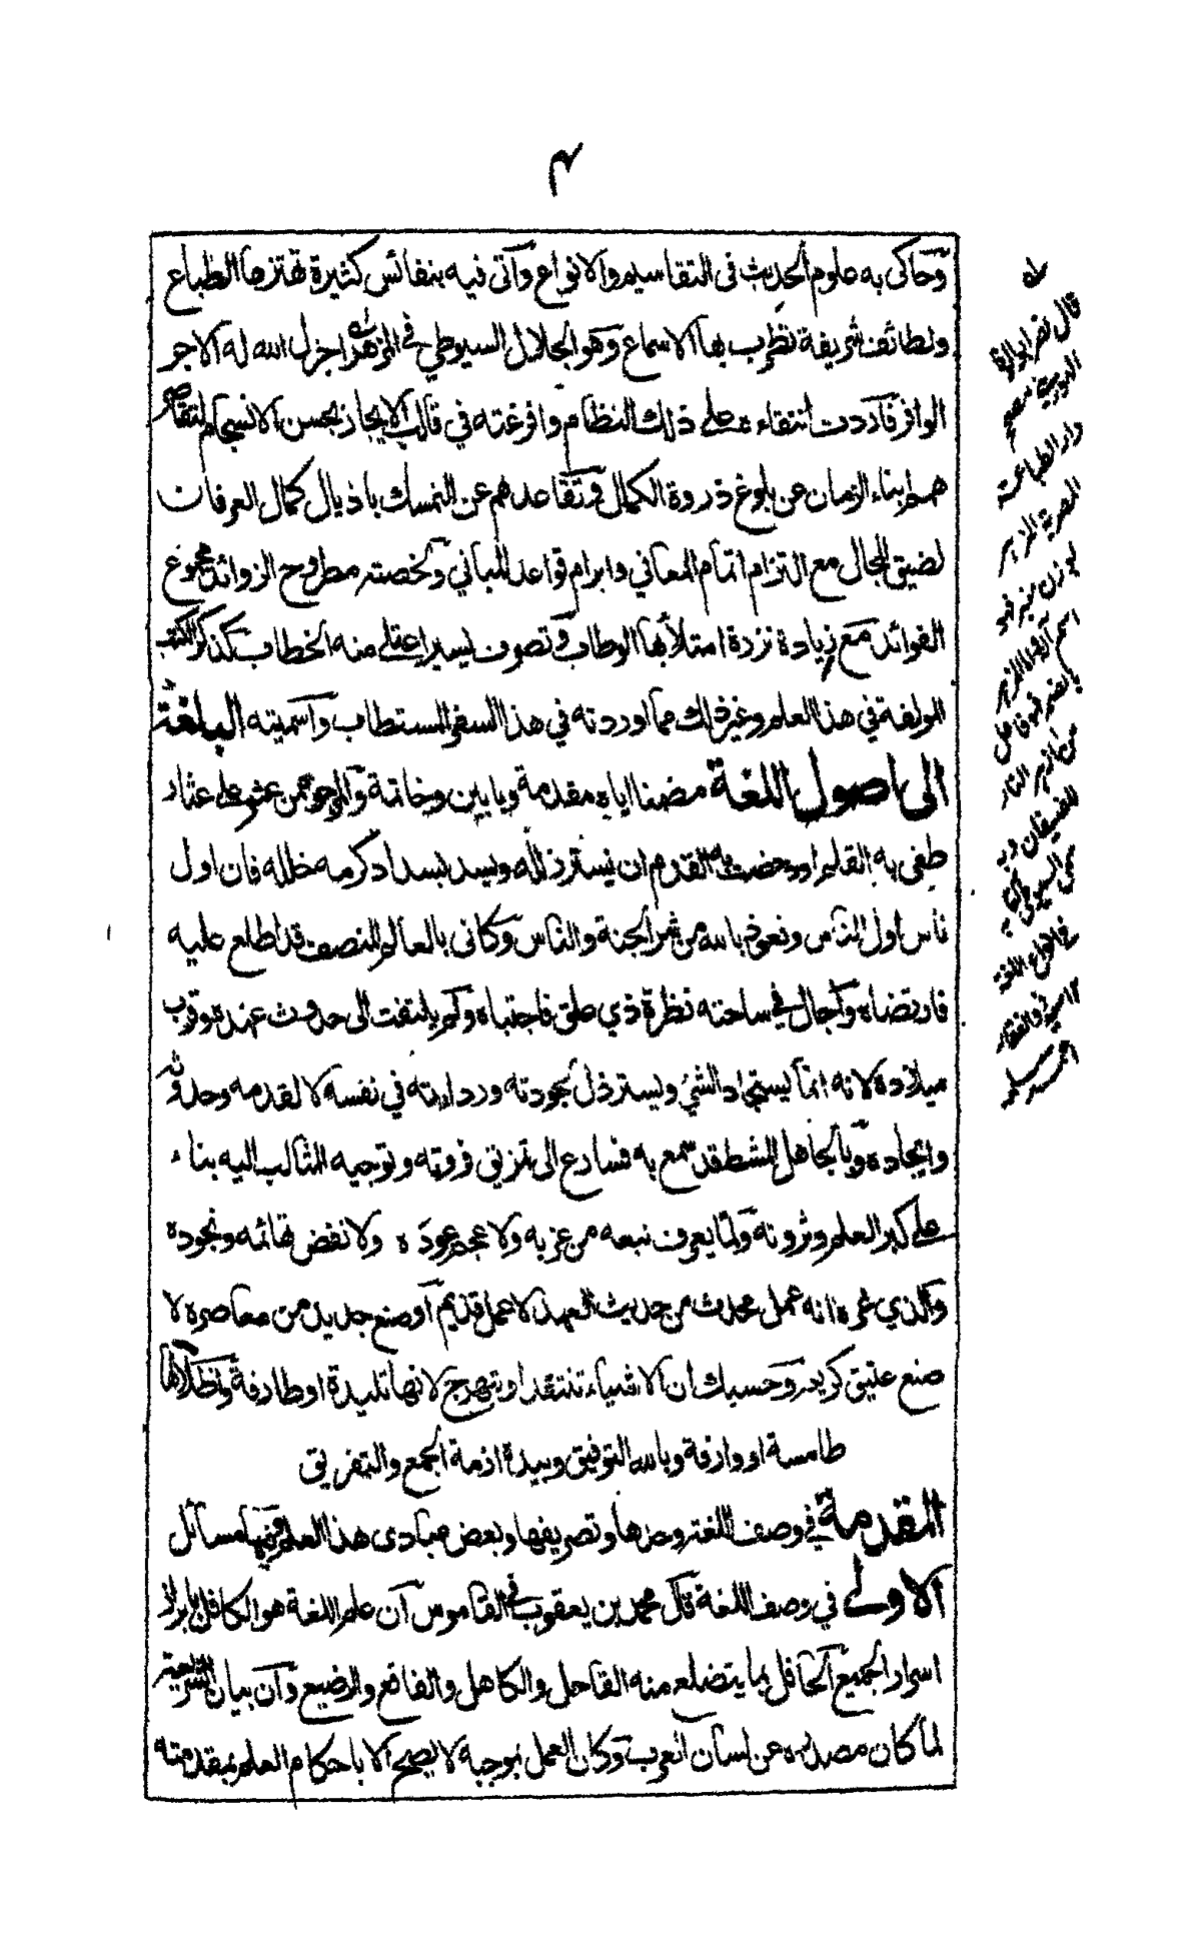 ٣
وحاكى به علوم الحديث فى التقاسيم والانواع وآتى فيه بنفائس كثيرة تهتز لها الطباع
ولطائف شريفة تطرب بها الاسماع وهو الجلال السيوطي في المزهر اجزل الله له الاجر
الوافر فآردت انتقاءه على ذلك النظام وافرغته في قالب الايجاز بحسن الانسجام لتقاصر
همم ابناء الزمان عن بلوغ ذروة الكمال وتقاعدهم عن التمسك باذيال كمال العرفان
لضيق المجال مع التزام اتمام المعاني وابرام قواعد المباني ولخصته مطروح الزوائد مجموع
الفوائد مع زيادة نزرة امتلأ بها الوطاب وتصرف يسير اعتلى منه الخطاب كذكر الكتب
المولفة في هذا العلم وغير ذلك مما اوردته في هذا السفر المستطاب واسميته البلغة
الى اصول اللغة مضمنا اياه مقدمة وبابين وخاتمة والمرجو ممن عثر على عثار
طغى به القلم او دحضت به القدم ان يستر زلله ويسد بسداد كرمه خلله فان اول
ناس اول الناس ونعوذ بالله من شر الجنة والناس وكانى بالعالم المنصف قد اطلع عليه
فارتضاه واجال في ساحته نظرة ذي علق فاجتباه ولم يلتفت الى حدوث عهده وقرب
ميلاده لانه انما يستجاد الشئ ويسترذل لجودته ورداءته في نفسه لا لقدمه وحدوثه
وايجاده وبالجاهل المشط قد سمع به فسارع الى تمزيق فروته وتوجيه المثالب اليه بناء
على كبر العلم وثروته ولما يعرف نبعه من غربه ولا عجم عوده ولا نفض تهائمه ونجوده
والذي غره انه عمل محدث من حديث العهد لا عمل قديم او صنع جديد من معاصره لا
صنع عتيق كريم وحسبك ان الاشياء تنتقد او تبهرج لانها تليدة او طارفة واطلالها
طامسة او وارفة وبالله التوفيق وبيده ازمة الجمع والتفريق
المقدمة في وصف اللغة وحدها وتصريفها وبعض مبادى هذا العلم وفيها مسائل
الاولى في وصف اللغة قال محمد بن يعقوب في القاموس ان علم اللغة هو الكافل بابراز
اسرار الجميع الحافل بما يتضلع منه القاحل والكاهل والفاقع والرضيع وان بيان الشريعة
لما كان مصدره عن لسان العرب وكان العمل بموجبه لا يصح الا باحكام العلم بمقدمته
قال نصر ابو الوفا
دار الطباعة
المصرية المزهر
بوزن منبر فهو
اسم آلة
للضيفان وبه
سمى السيوطي كتابه
في انواع اللغة